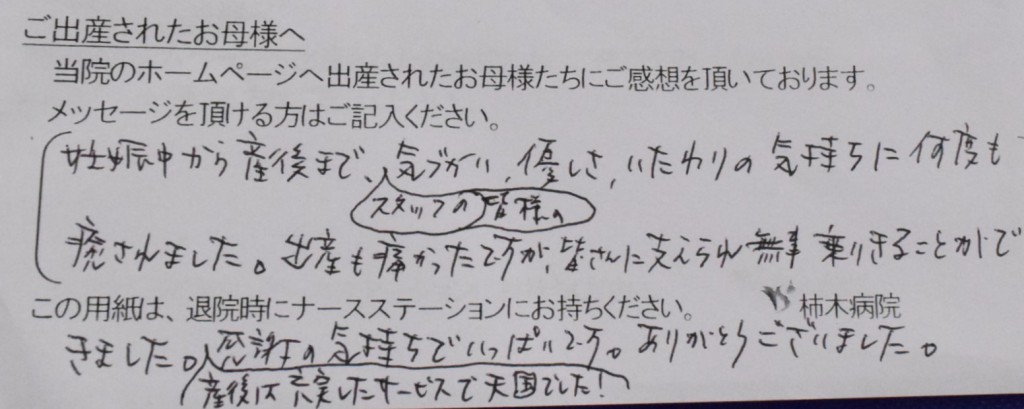 ご出産されたお母様へ
当院のホームページへ出産されたお母様たちにご感想を頂いております。
メッセージを頂ける方はご記入ください。
妊娠中から産後まで、気づかい、優しさ、いたわりの気持ちに何度も
スタッフの皆様の
癒されました。出産も痛かったですが、皆さんに支えられ無事乗りきることがで
この用紙は、退院時にナースステーションにお持ちください。 柿木病院
きました。感謝の気持ちでいっぱいです。ありがとうございました。
産後は充実したサービスで天国でした!